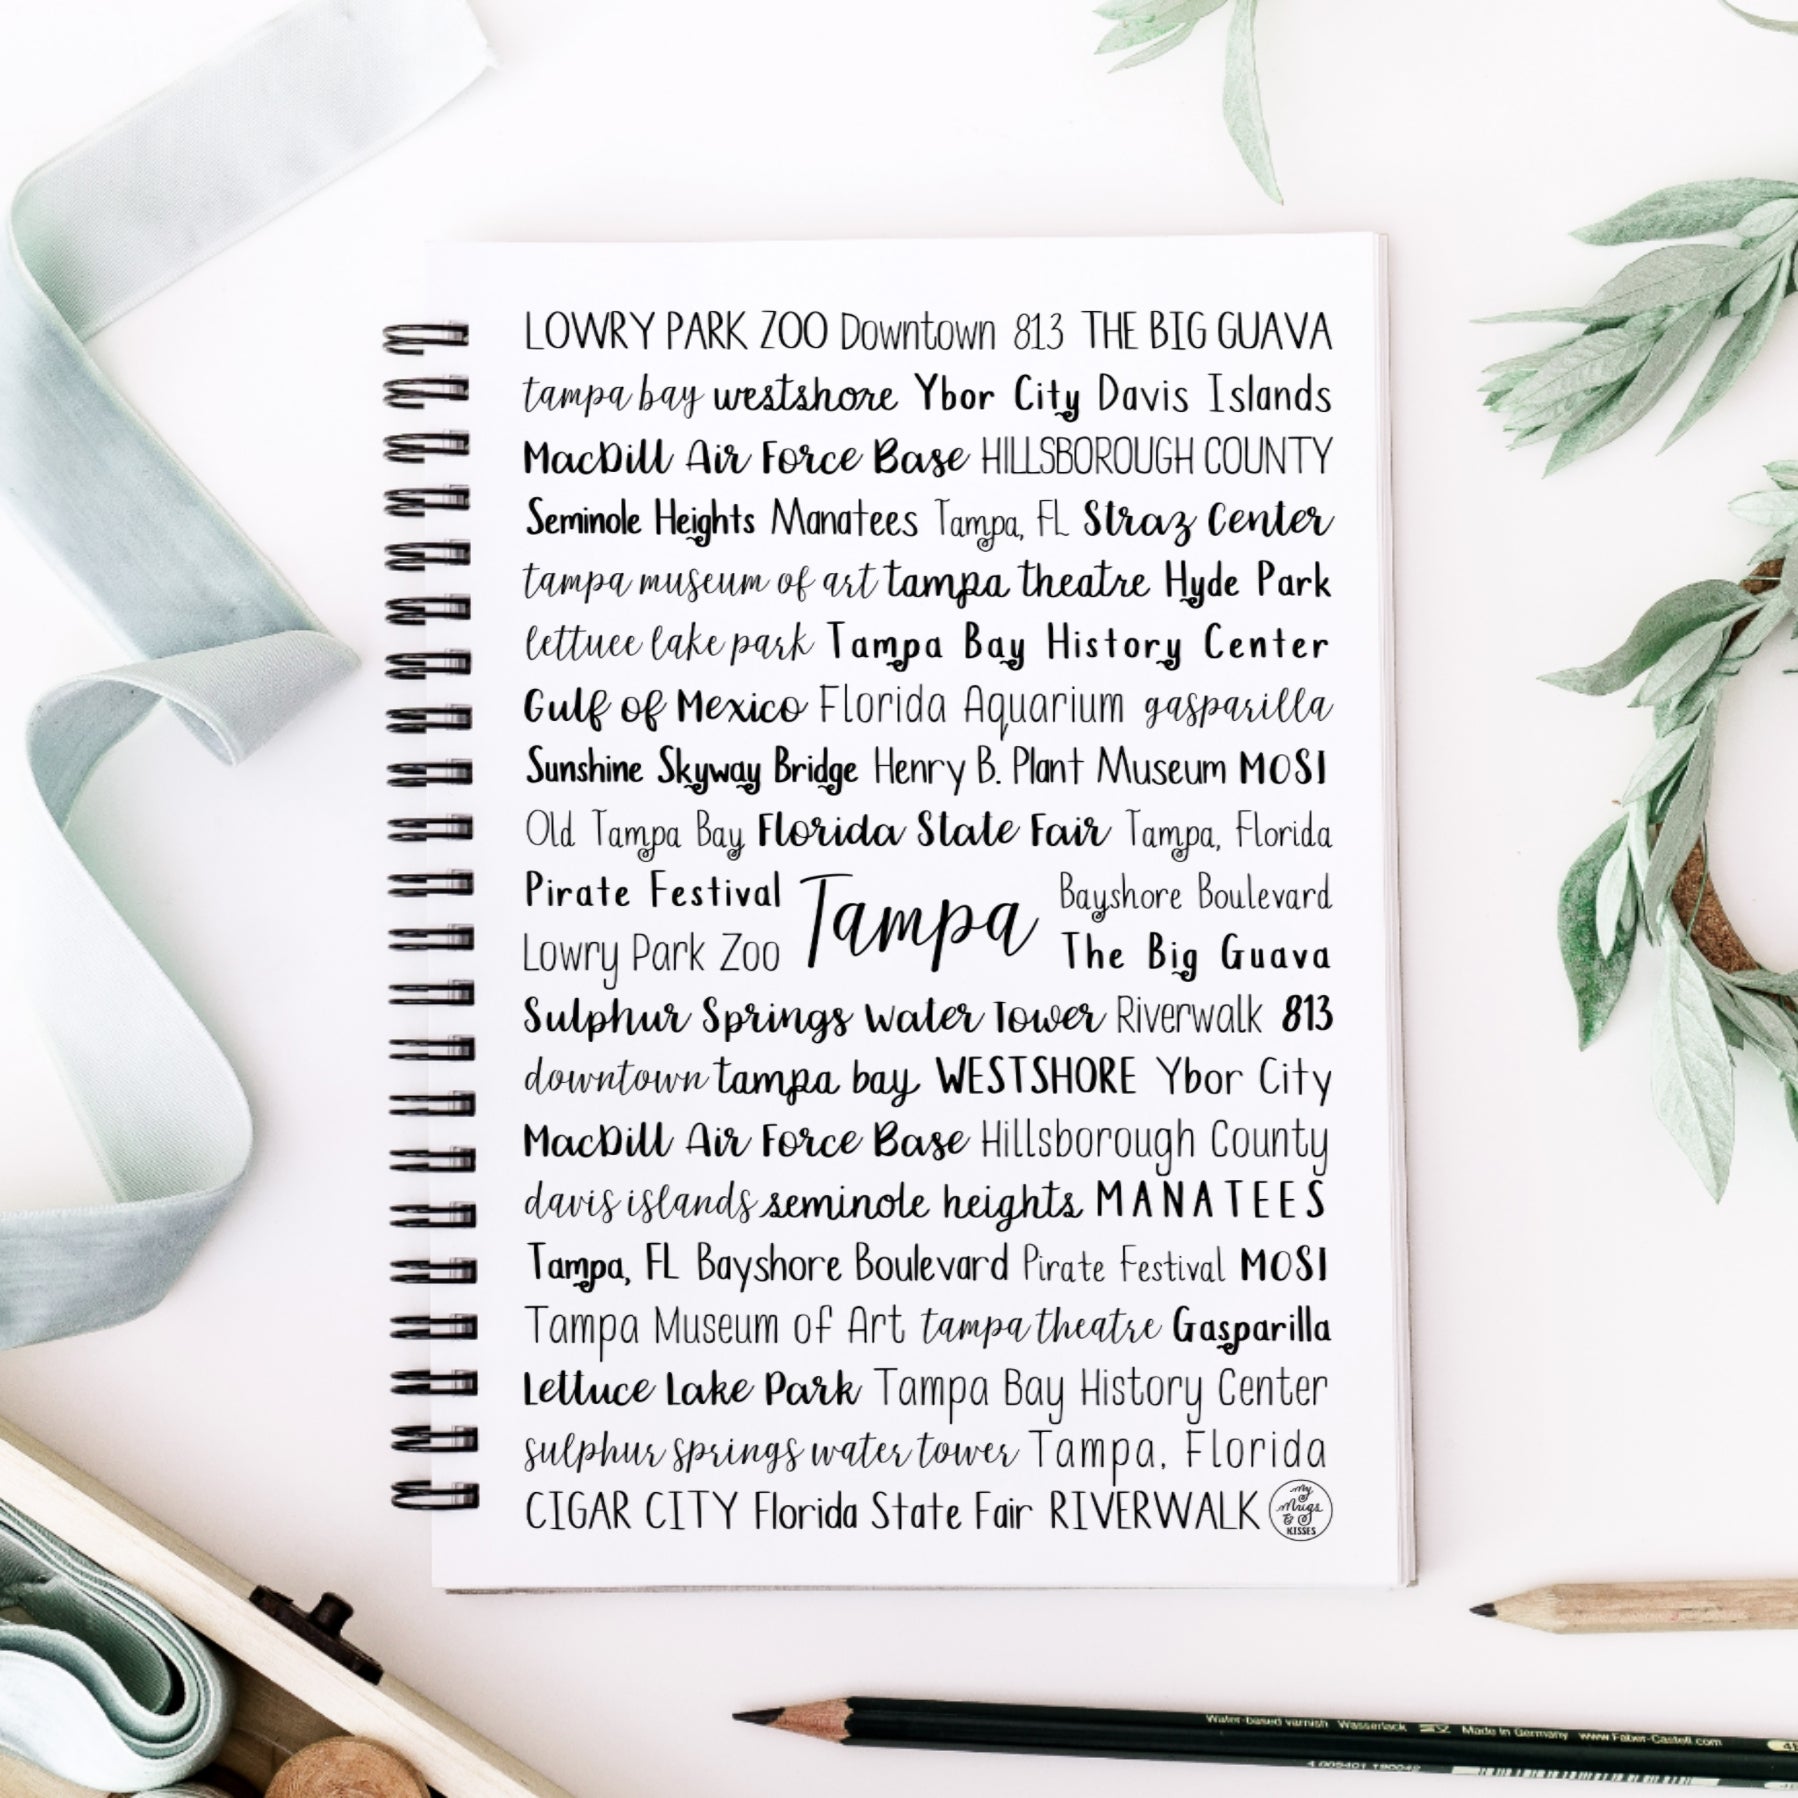 LOWRY PARK ZOO Downtown 813 THE BIG GUAVA
tampa bay westshore Ybor City Davis Islands
MacDill Air Force Base HILLSBOROUGH COUNTY
Seminole Heights Manatees Tampa, FL Straz Center
tampa museum of art tampa theatre Hyde Park
lettuce lake park Tampa Bay History Center
Gulf of Mexico Florida Aquarium gasparilla
Sunshine Skyway Bridge Henry B. Plant Museum MOSI
Old Tampa Bay Florida State Fair Tampa, Florida
Pirate Festival
Lowry Park Zoo
Tampa
Bayshore Boulevard
The Big Guava
Sulphur Springs Water Tower Riverwalk 813
downtown tampa bay WESTSHORE Ybor City
MacDill Air Force Base Hillsborough County
davis islands seminole heights MANATEES
Tampa, FL Bayshore Boulevard Pirate Festival MOSI
Tampa Museum of Art tampa theatre Gasparilla
Lettuce Lake Park Tampa Bay History Center
sulphur springs water tower Tampa, Florida
CIGAR CITY Florida State Fair RIVERWALK
My
Mugs
&
KISSES
Water-based varnish Wasserlack Made in Germany www.Faber-Castell.com
4 005401 190042